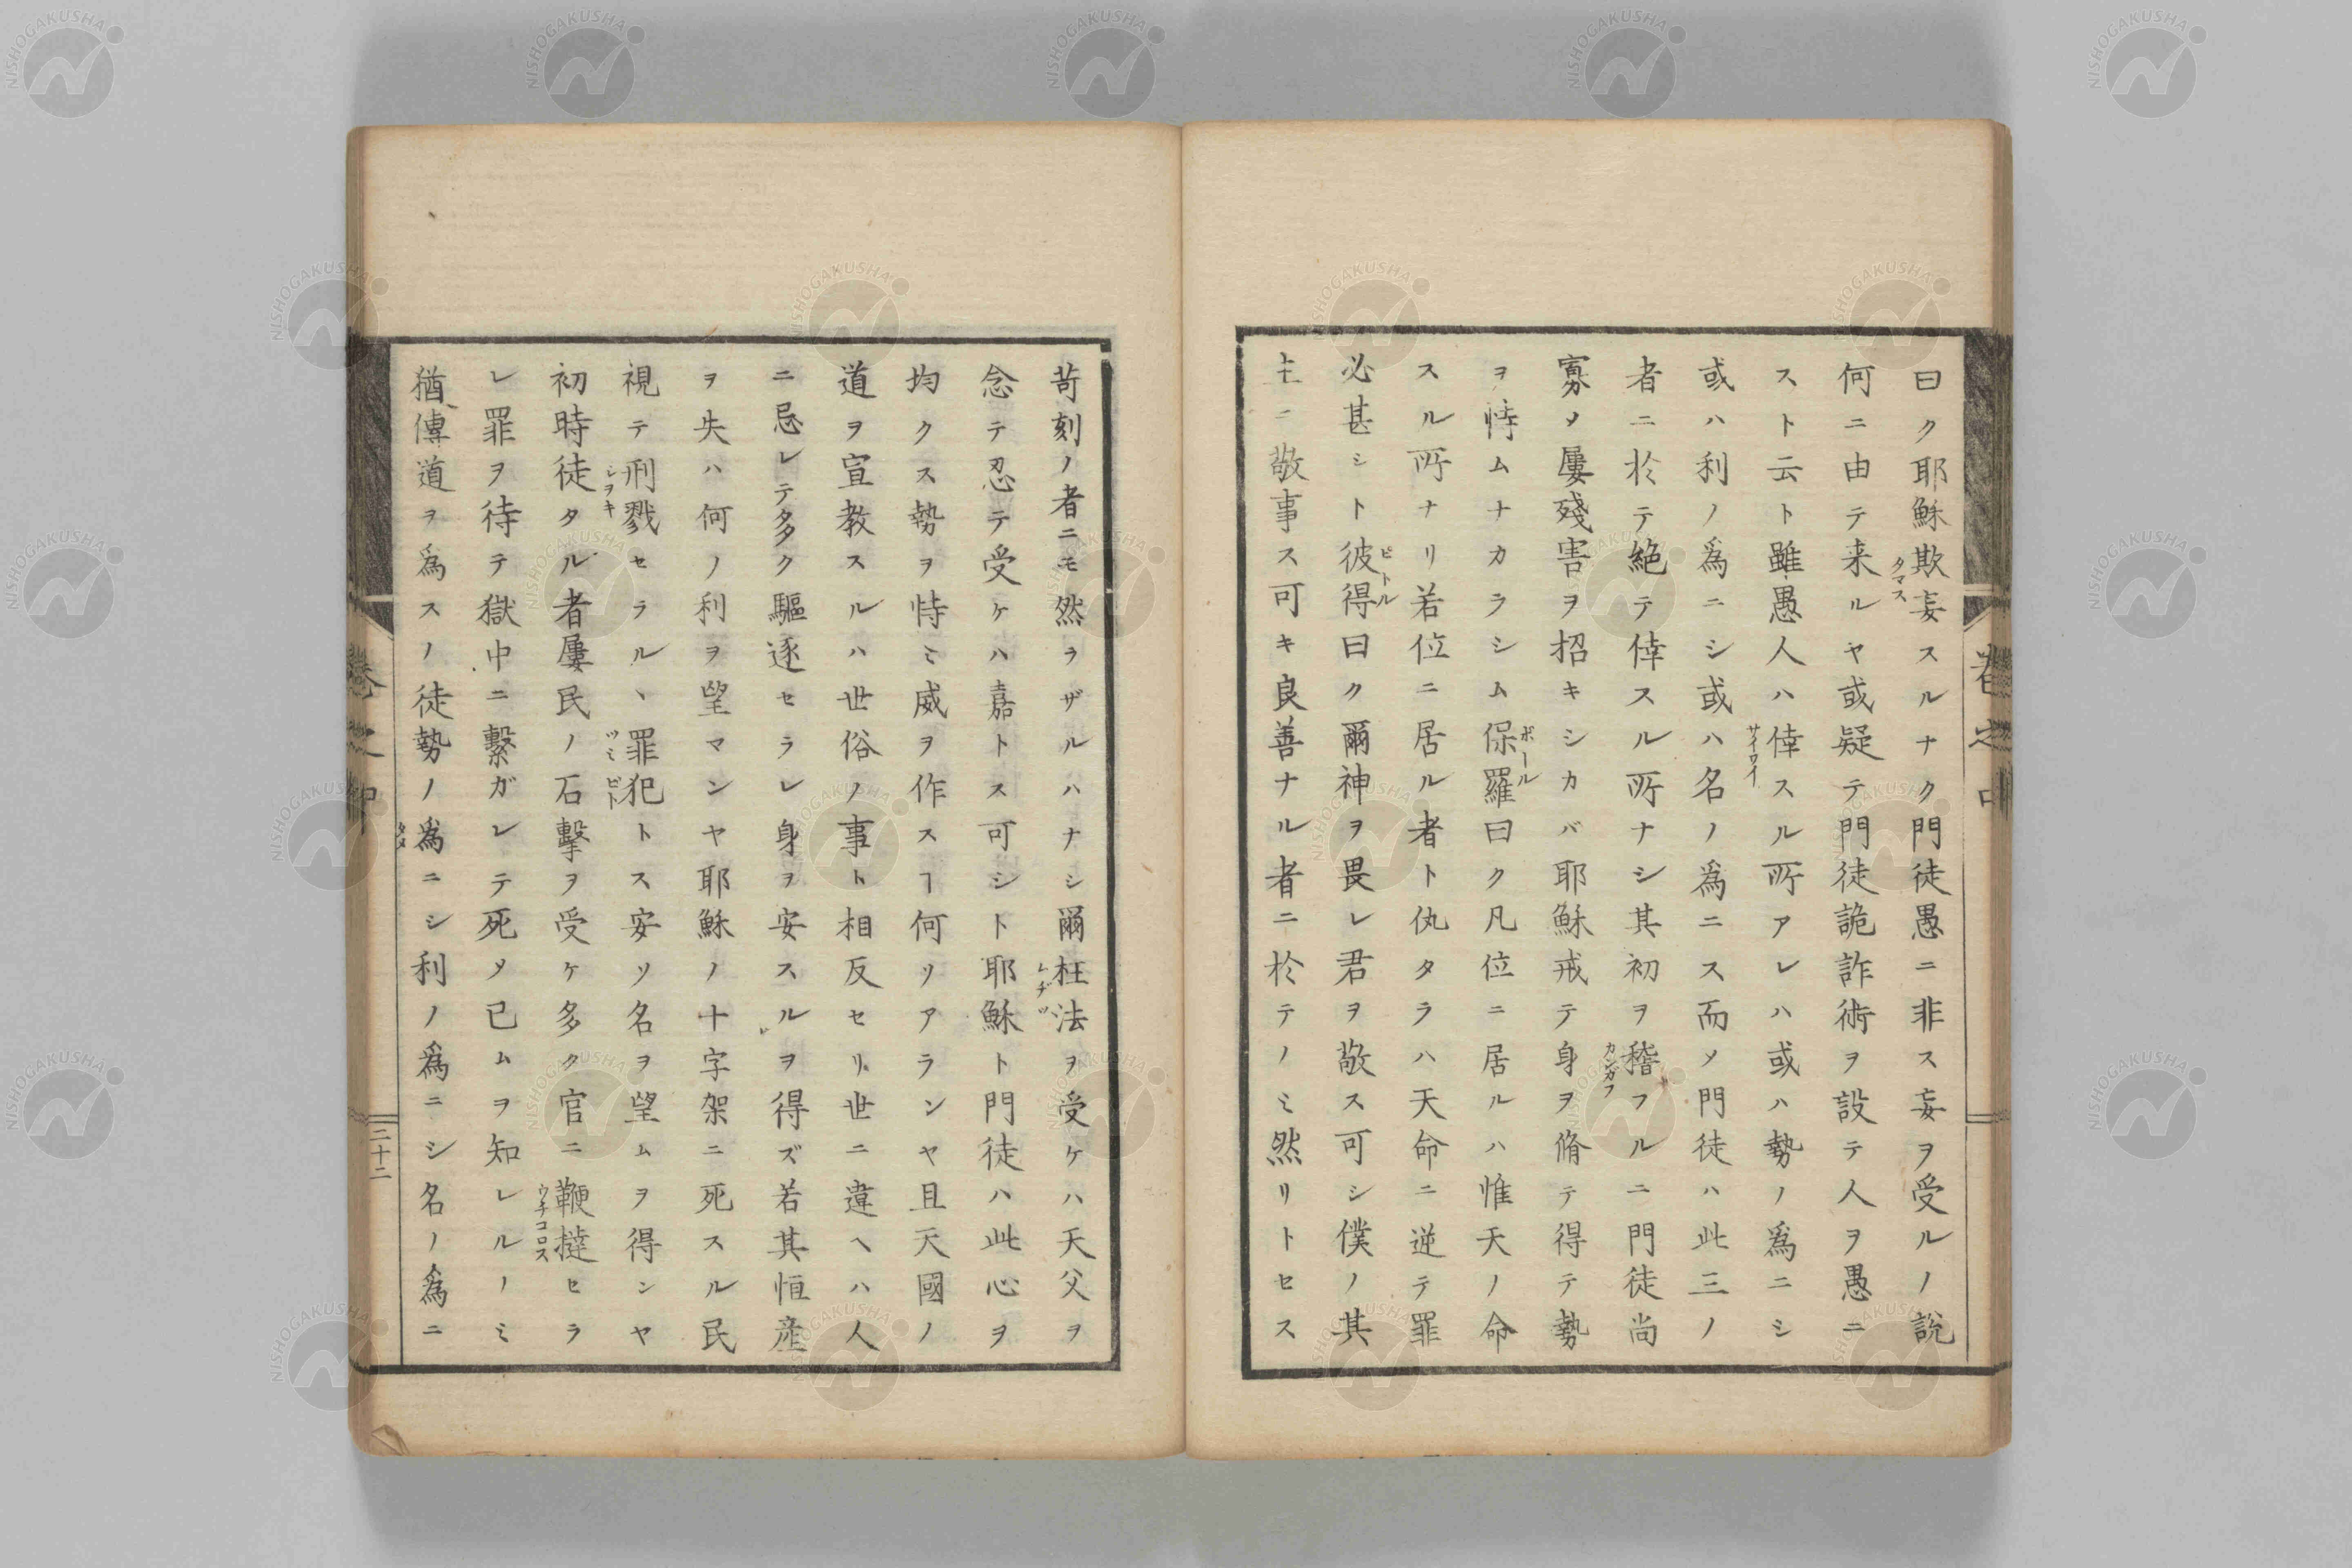 曰ク耶穌欺妄スルナク門徒愚ニ非ス妄ヲ受ルノ說
タマス
何ニ由テ来ルヤ或疑テ門徒詭詐術ヲ設テ人ヲ愚ニ
スト云ト雖愚人ハ倖スル所アレハ或ハ勢ノ爲ニシ
サイワイ
或ハ利ノ爲ニシ或ハ名ノ爲ニス而メ門徒ハ此三ノ
者ニ於テ絶テ倖スル所ナシ其初ヲ稽フルニ門徒尚
カンガフ
寡メ屢殘害ヲ招キシカバ耶穌戒テ身ヲ脩テ得テ勢
ヲ恃ムナカラシム保羅曰ク凡位ニ居ルハ惟天ノ命
ボール
スル所ナリ若位ニ居ル者ト仇タラハ天命ニ逆テ罪
必甚シト彼得曰ク爾神ヲ畏レ君ヲ敬ス可シ僕ノ其
ビトル
主ニ敬事ス可キ良善ナル者ニ於テノミ然リトセス
卷之中
苛刻ノ者ニモ然ラザルハナシ爾枉法ヲ受ケハ天父ヲ
念テ忍テ受ケハ嘉トス可シト耶穌ト門徒ハ此心ヲ
均クス勢ヲ恃ミ威ヲ作スヿ何リアランヤ且天國ノ
道ヲ宣教スルハ世俗ノ事ト相反セリ世ニ違ヘハ人
ニ忌レテ多ク驅逐セラレ身ヲ安スルヲ得ズ若其恒産
ヲ失ハ何ノ利ヲ望マンヤ耶穌ノ十字架ニ死スル民
視テ刑戮セラルヽ罪犯トス安ソ名ヲ望ムヲ得ンヤ
シヲキ
ツミビト
初時徒タル者屢民ノ石擊ヲ受ケ多ク官ニ鞭撻セラ
ウチコロス
レ罪ヲ待テ獄中ニ繫ガレテ死メ已ムヲ知レルノミ
猶傳道ヲ爲スノ徒勢ノ爲ニシ利ノ爲ニシ名ノ爲ニ
卷之中
二十二
NISHOGAKUSHA